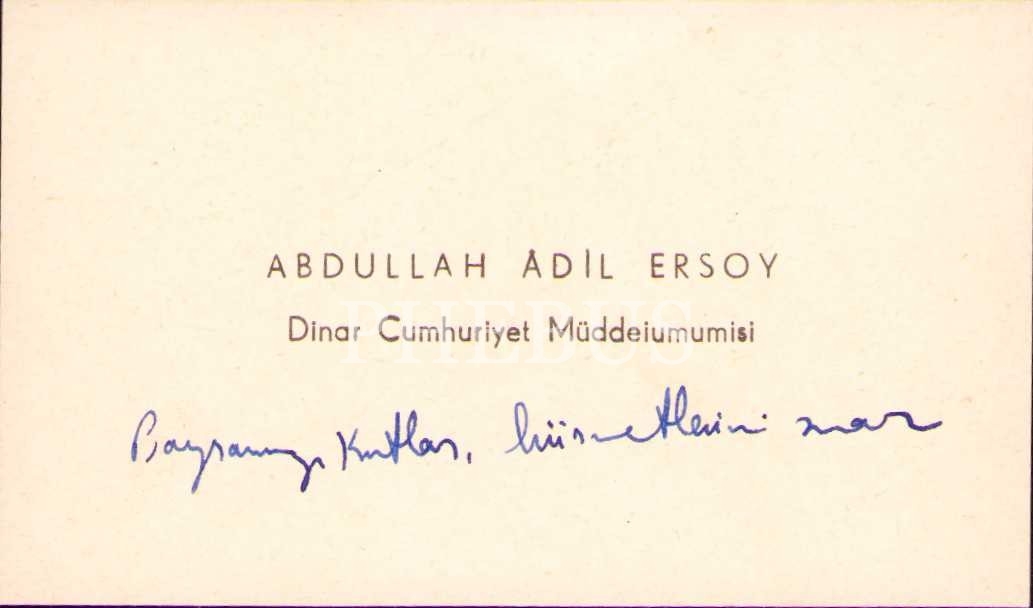 ABDULLAH ÂDİL ERSOY
Dinar Cumhuriyet Müddeiumumisi
PHEBUS
Bayramınızı Kutlar, hürmetlerimi sunar